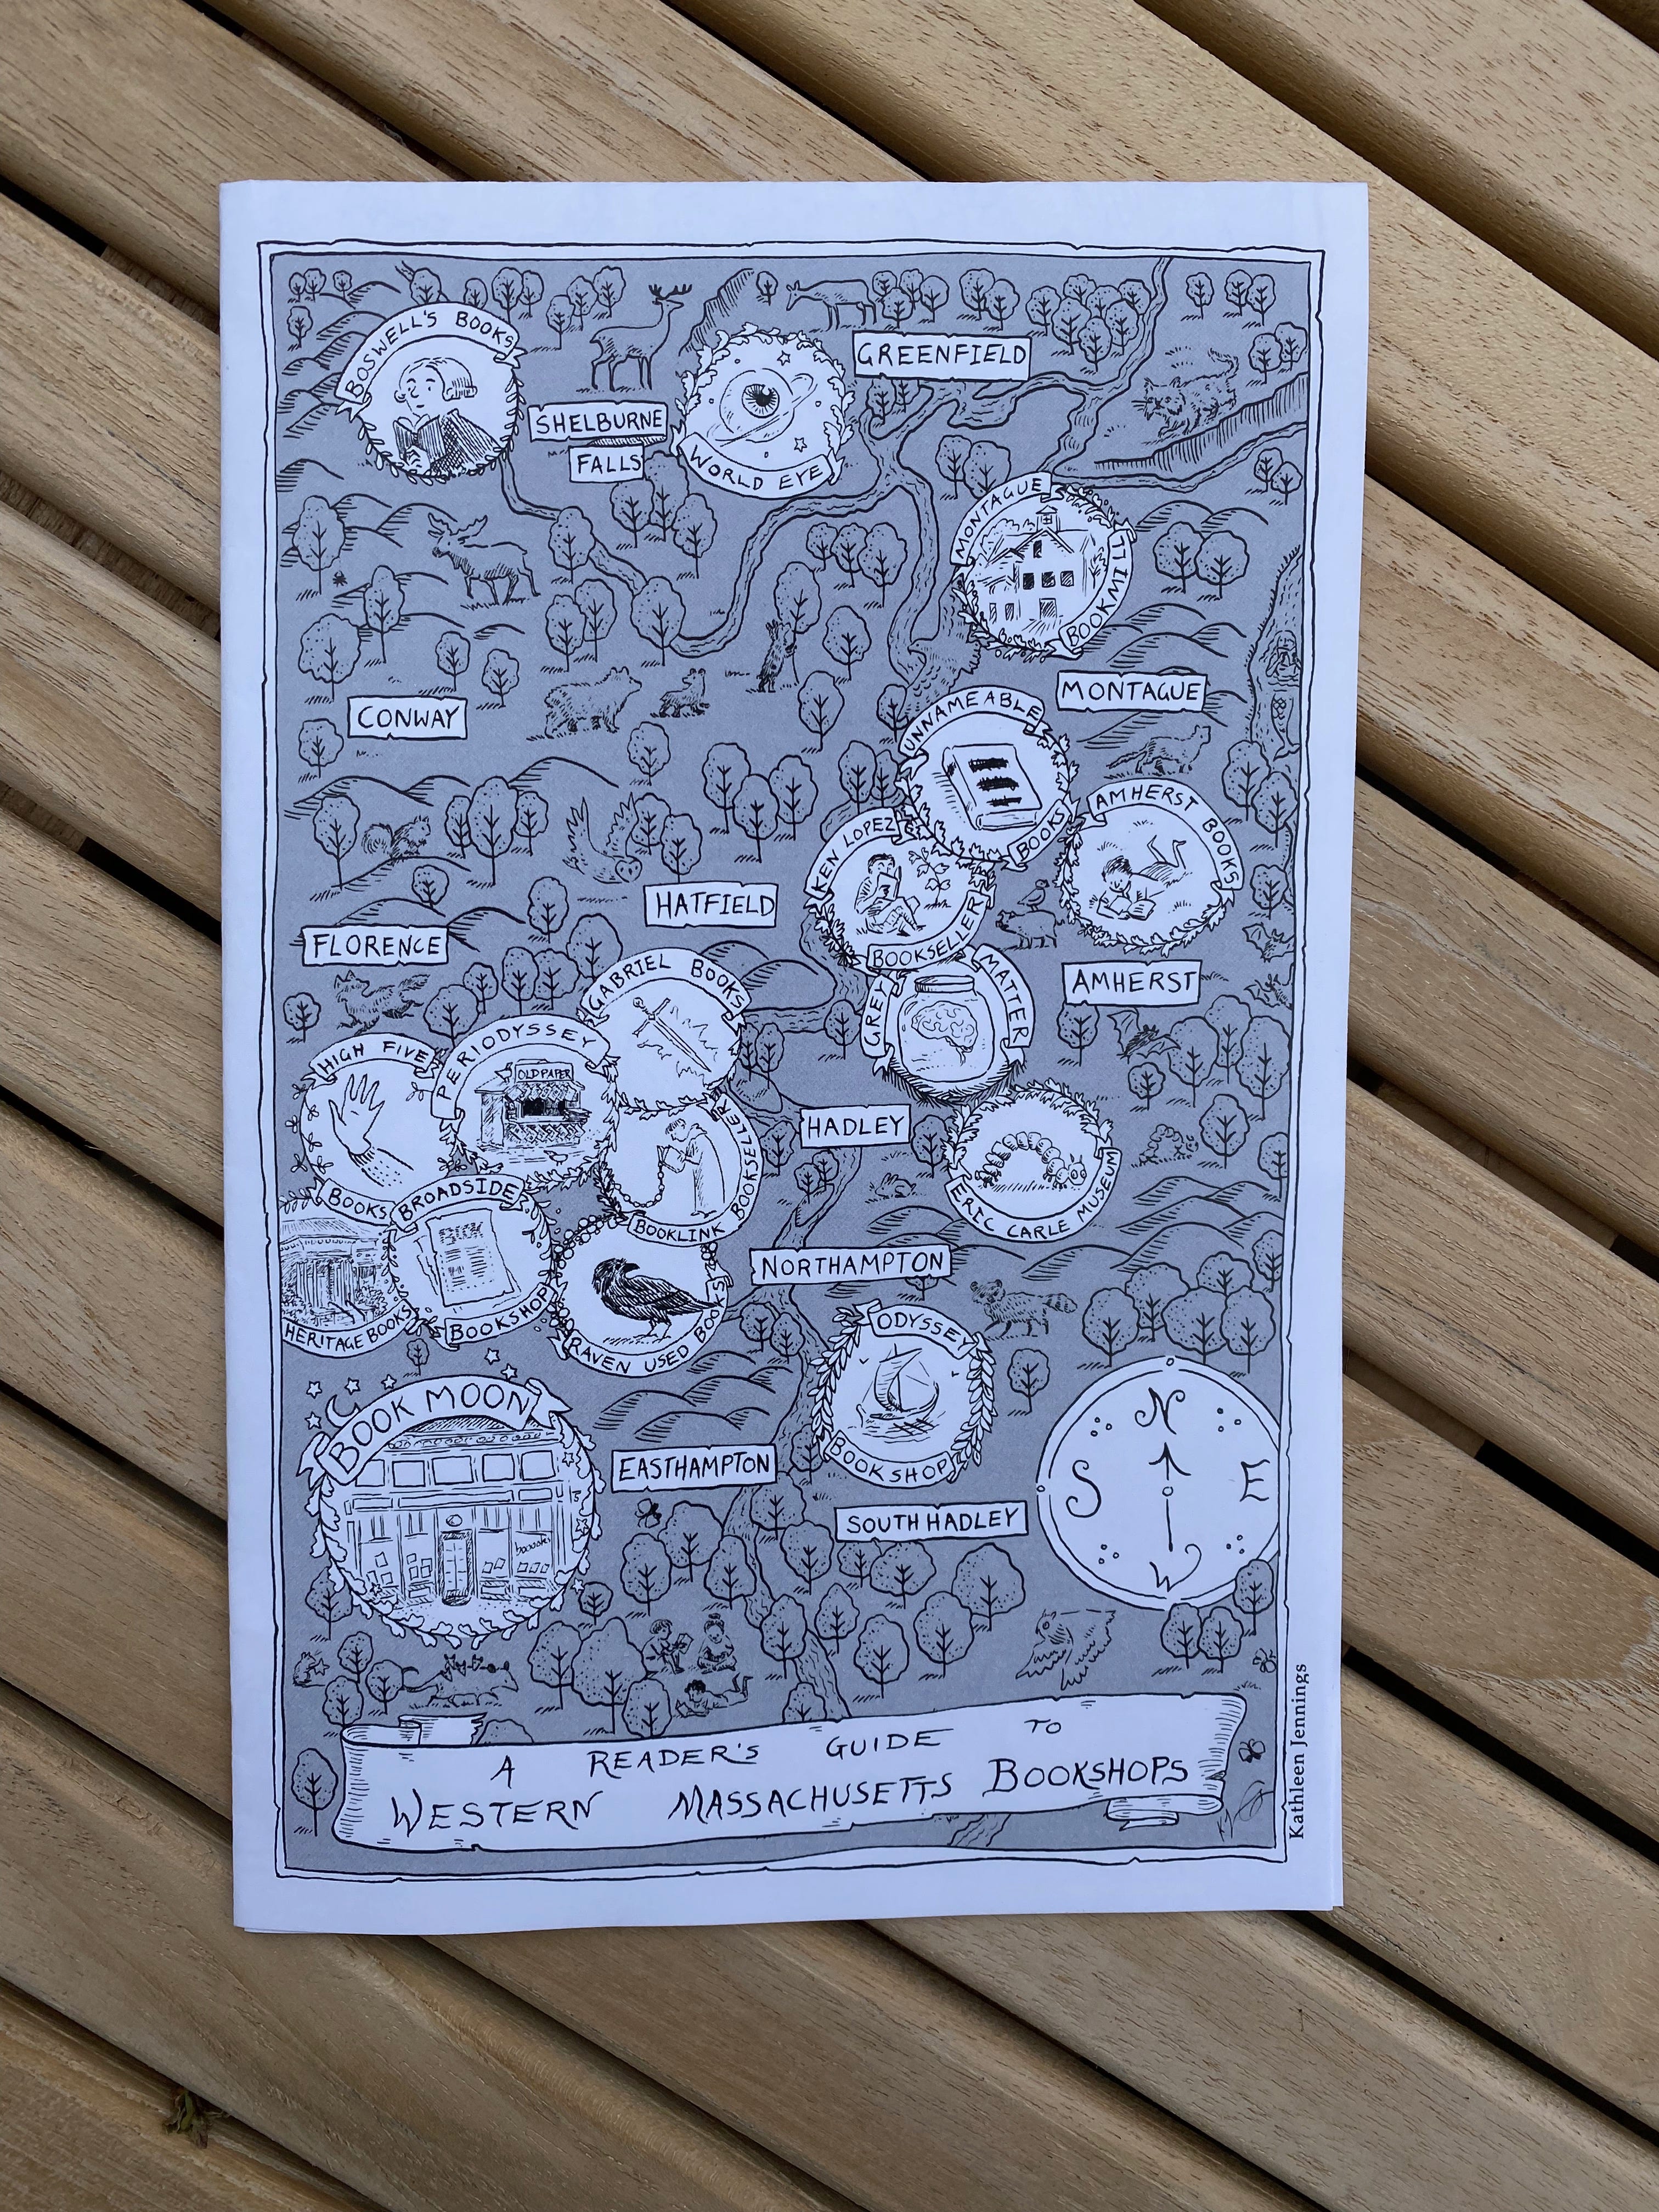 BOSWELL'S BOOKS
GREENFIELD
SHELBURNE
FALLS
WORLD EYE
MONTAGUE
BOOKMILL
MONTAGUE
CONWAY
UNNAMEABLE
BOOKS
AMHERST BOOKS
KEN LOPEZ
BOOKSELLER
HATFIELD
FLORENCE
AMHERST
GABRIEL BOOKS
GREY MATTER
HIGH FIVE
BOOKS
PERIODYSSEY
OLD PAPER
HADLEY
BOOKLINK BOOKSELLER
ERIC CARLE MUSEUM
BROADSIDE
BOOKSHOP
HERITAGE BOOKS
RAVEN USED BOOKS
NORTHAMPTON
ODYSSEY
BOOKSHOP
BOOK MOON
EASTHAMPTON
SOUTH HADLEY
N
S E
W
A READER'S GUIDE TO
WESTERN MASSACHUSETTS BOOKSHOPS
Kathleen Jennings